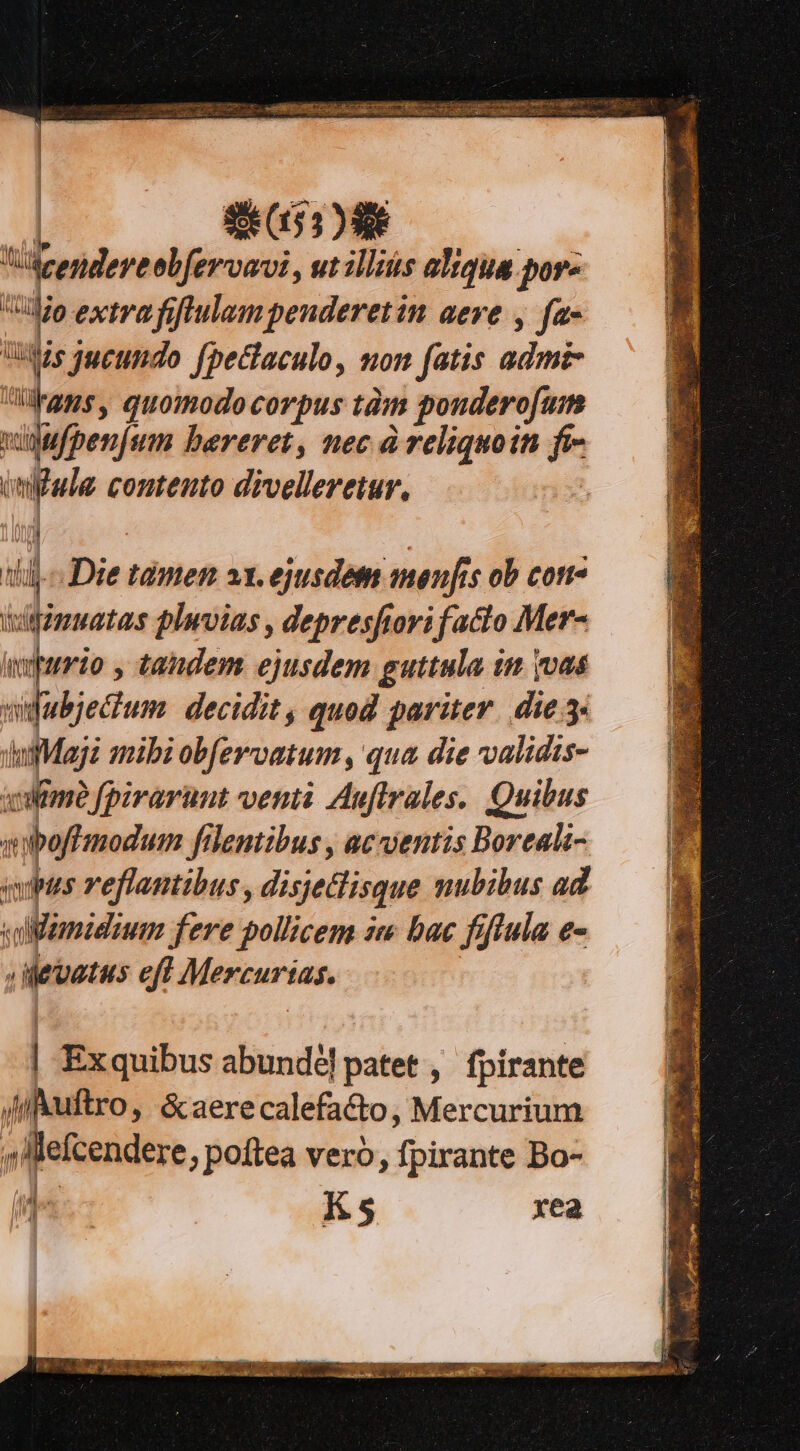 (153)
cendere obſervavi, ut illius aliqua por-
io extra fiſtulam penderet in aere, ſa-
is jucundo ſpectaculo, non ſatis admi-
rans, quomodo corpus tàm ponderoſum
uſpenſum hæreret, nec à reliquo in fi-
ſtula contento divelleretur.
Die tamen 21. ejusdem menſis ob con-
tinuatas pluvias, depresſiori facto Mer-
curio, tandem ejusdem guttula in vas
ubjectum decidit, quod pariter die 3.
Maji mihi obſervatum, qua die validis-
ſimè ſpirarunt venti Auſtrales. Quibus
poſtmodum ſilentibus, ac ventis Boreali-
bus reflantibus, disjectisque nubibus ad
dimidium fere pollicem in hac fiſtula e-
levatus eſt Mercurias.
Ex quibus abundè patet, ſpirante
Auſtro, & aere calefacto, Mercurium
deſcendere, poſtea verò, ſpirante Bo-
K 5 rea